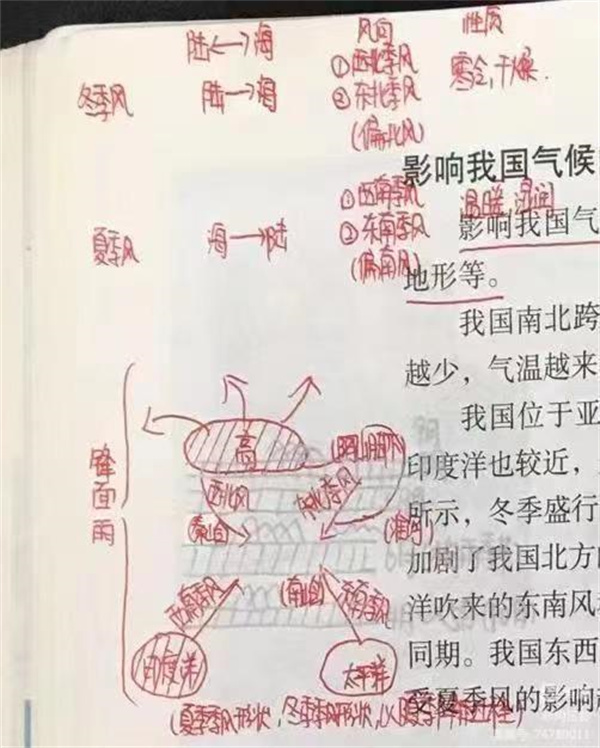 陆←→海 风向 性质
冬季风 陆→海 ①西北季风 寒冷,干燥.
②东北季风
(偏北风)
影响我国气候
夏季风 海→陆 ①西南季风 温暖 湿润
②东南季风
(偏南风)
影响我国气
地形等。
我国南北跨
越少，气温越来
我国位于亚
印度洋也较近，
所示，冬季盛行
加剧了我国北方
洋吹来的东南风
同期。我国东西
受夏季风的影响
锋面雨
高
西北风 东北季风
(秦岭) (淮河)
西南季风 (南岭) 东南季风
印度洋 太平洋
(夏季季风形状,冬季季风形状,以及